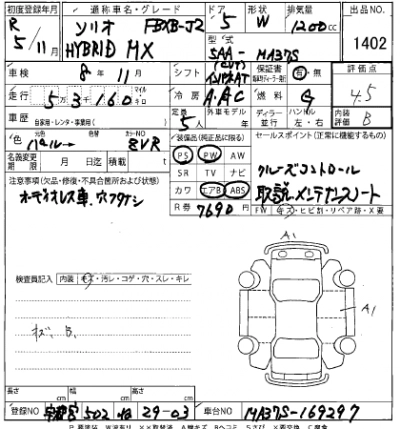 初度登録年月 通称車名・グレード ドア 形状 排気量 出品NO.
R 5/11月 ソリオ FBXB-J2 5 W 1200cc 1402
HYBRID MX
型式 5AA-MA37S
車検 8年11月 シフト INPAT 保証書 有・無 評価点 4.5
走行 53160 キロ マイル 冷房 AAC 燃料 G
車歴 自家用・レンタ・事業用( ) 定員 5人 外車モデル 年 ディーラー 並行 ハンドル 左・右 内装評価 B
色 元色 パール→ 色替 カラーNO 8VR 装備品(純正品に限る) セールスポイント(正常に機能するもの)
名義変更期限 月 日迄 積載 t PS PW AW クルーズコントロール
注意事項(欠品・修復・不具合箇所および状態) SR TV ナビ
オーディオレス車. 穴アケシ カワ エアB ABS 取説.メンテナンスノート
R券 7690円 FW キズ・ヒビ割・リペア跡・X要
A1
検査員記入 内装 キズ・汚レ・コゲ・穴・スレ・キレ
A1
キズ、B.
長さ cm 幅 cm 高さ cm
登録NO 宇都宮 502 29-03 車台NO MA37S-169297